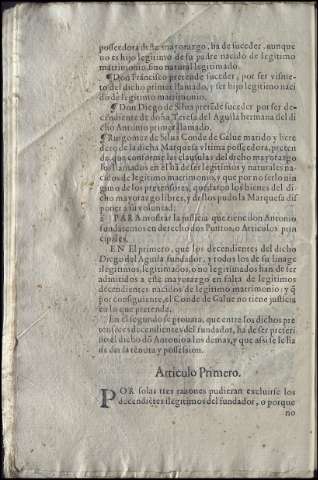 posseedora deste mayorazgo, ha de suceder, aunque
no es hijo legitimo de su padre nacido de legitimo
matrimonio, sino natural legitimado.
¶ Don Francisco pretende suceder, por ser visnie-
to del dicho primer llamado, y ser hijo legitimo naci
do de legitimo matrimonio.
¶ Don Diego de Silua pretēde suceder por ser de-
cendiente de doña Teresa del Aguila hermana del di
cho Antonio primer llamado.
¶ Ruigomez de Silua Conde de Galue marido y here
dero de la dicha Marquesa vltima posseedora, preten
de, que conforme las clausulas del dicho mayorazgo
los llamados en el hā de ser legitimos y naturales na
cidos de legitimo matrimonio, y que por no serlo nin
guno de los pretensores, quedaron los bienes del di
cho mayorazgo libres, y dellos pudo la Marquesa dis
poner a su voluntad.
PARA mostrar la justicia que tiene don Antonio
fundaremos en derecho dos Puntos, o Articulos prin
cipales.
EN El primero, que los decendientes del dicho
Diego del Aguila fundador, y todos los de su linage
ilegitimos, legitimados, o no legitimados han de ser
admitidos a este mayorazgo en falta de legitimos
decendientes nacidos de legitimo matrimonio: y q̄
por consiguiente, el Conde de Galue no tiene justicia
en lo que pretende.
En el segundo se prouara, que entre los dichos pre
tensores decendientes del fundador, ha de ser preferi
do el dicho dō Antonio a los demas, y que assi se le ha
de dar la tenuta y possession.
Articulo Primero.
POR solas tres razones pudieran excluirse los
decendiētes ilegitimos del fundador, o porque
no